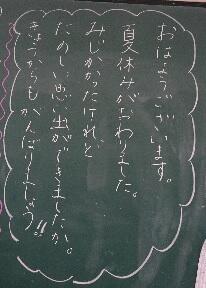 おはようございます。
夏休みがおわりました。
みじかかったけれど
たのしい思い出ができましたか。
きょうからもがんばりましょう!!